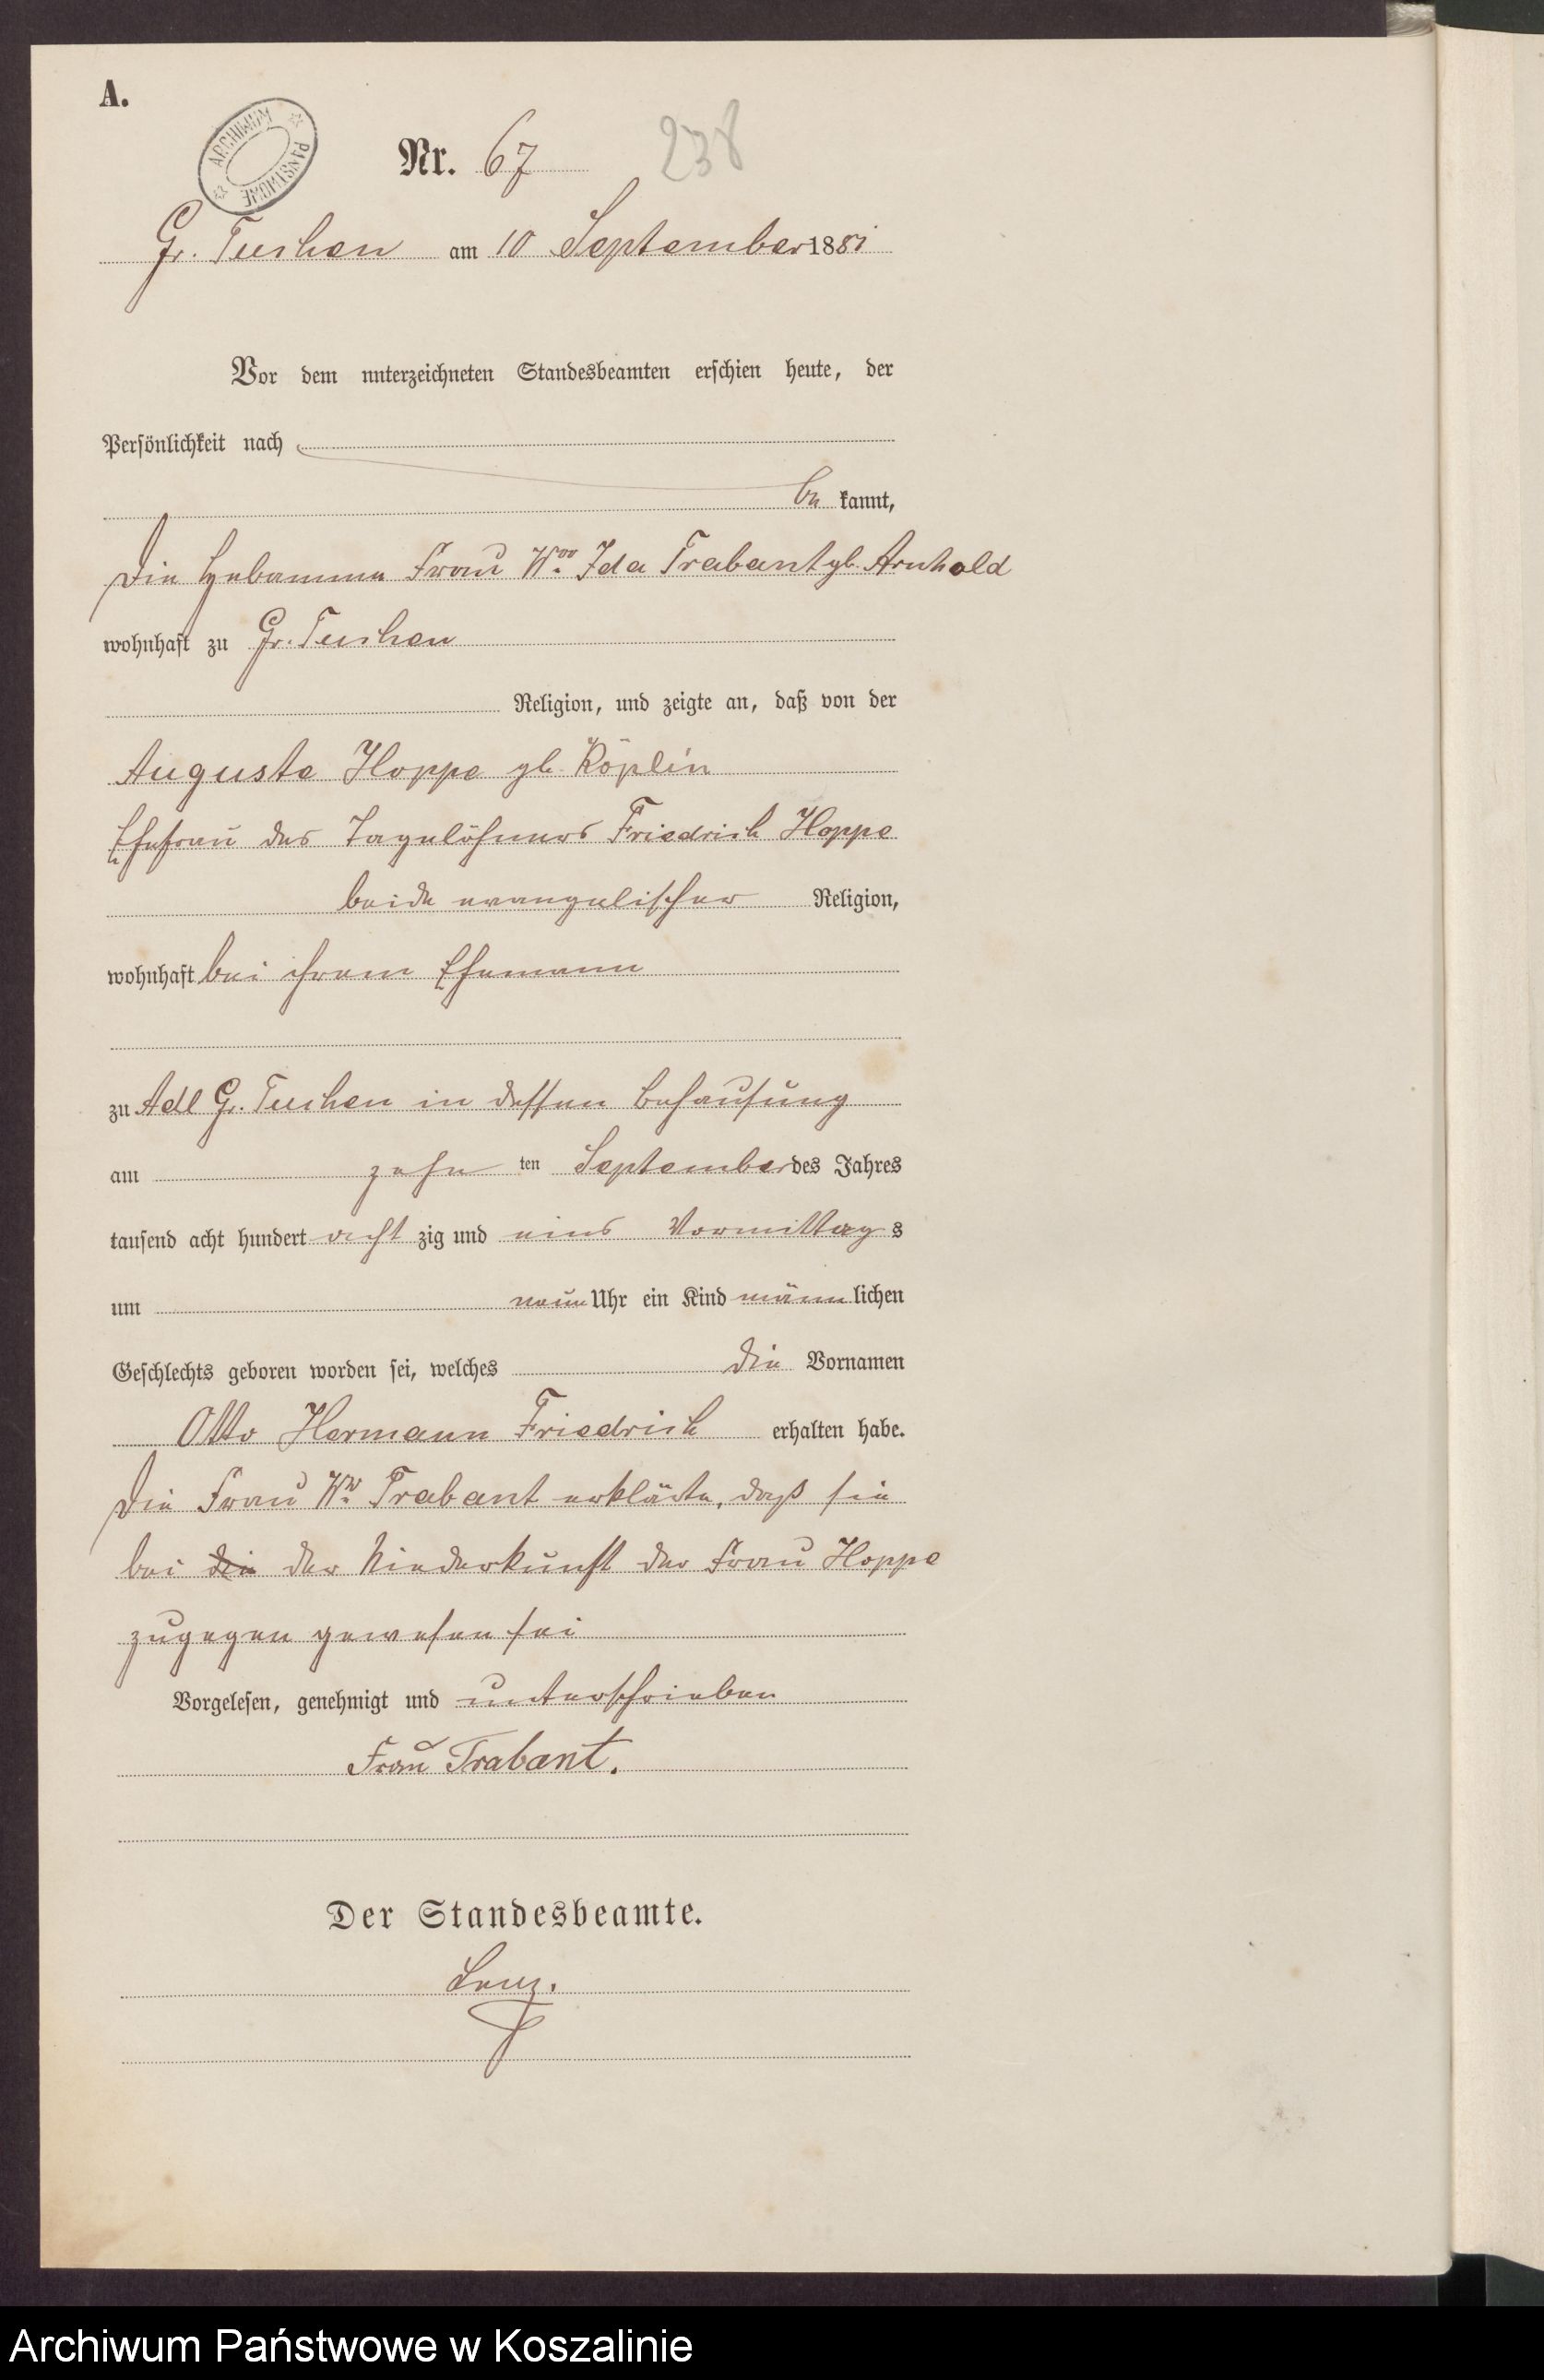 A.
ARCHIWUM PAŃSTWOWE
Nr. 67 238
Gr. Tuchen am 10 September 1881
Vor dem unterzeichneten Standesbeamten erschien heute, der
Persönlichkeit nach
be kannt,
die Hebamme Frau Wwe Ida Trabant gb. Arnhold
wohnhaft zu Gr. Tuchen
Religion, und zeigte an, daß von der
Auguste Hoppe gb. Röplin
Ehefrau des Tagelöhners Friedrich Hoppe
beide evangelischer Religion,
wohnhaft bei ihrem Ehemann
zu Adl Gr. Tuchen in dessen Behausung
am zehn ten September des Jahres
tausend acht hundert acht zig und eins Vormittag s
um neun Uhr ein Kind männ lichen
Geschlechts geboren worden sei, welches die Vornamen
Otto Hermann Friedrich erhalten habe.
Die Frau Ww. Trabant erklärte, daß sie
bei der Niederkunft der Frau Hoppe
zugegen gewesen sei
Vorgelesen, genehmigt und unterschrieben
Frau Trabant.
Der Standesbeamte.
Lenz.
Archiwum Państwowe w Koszalinie